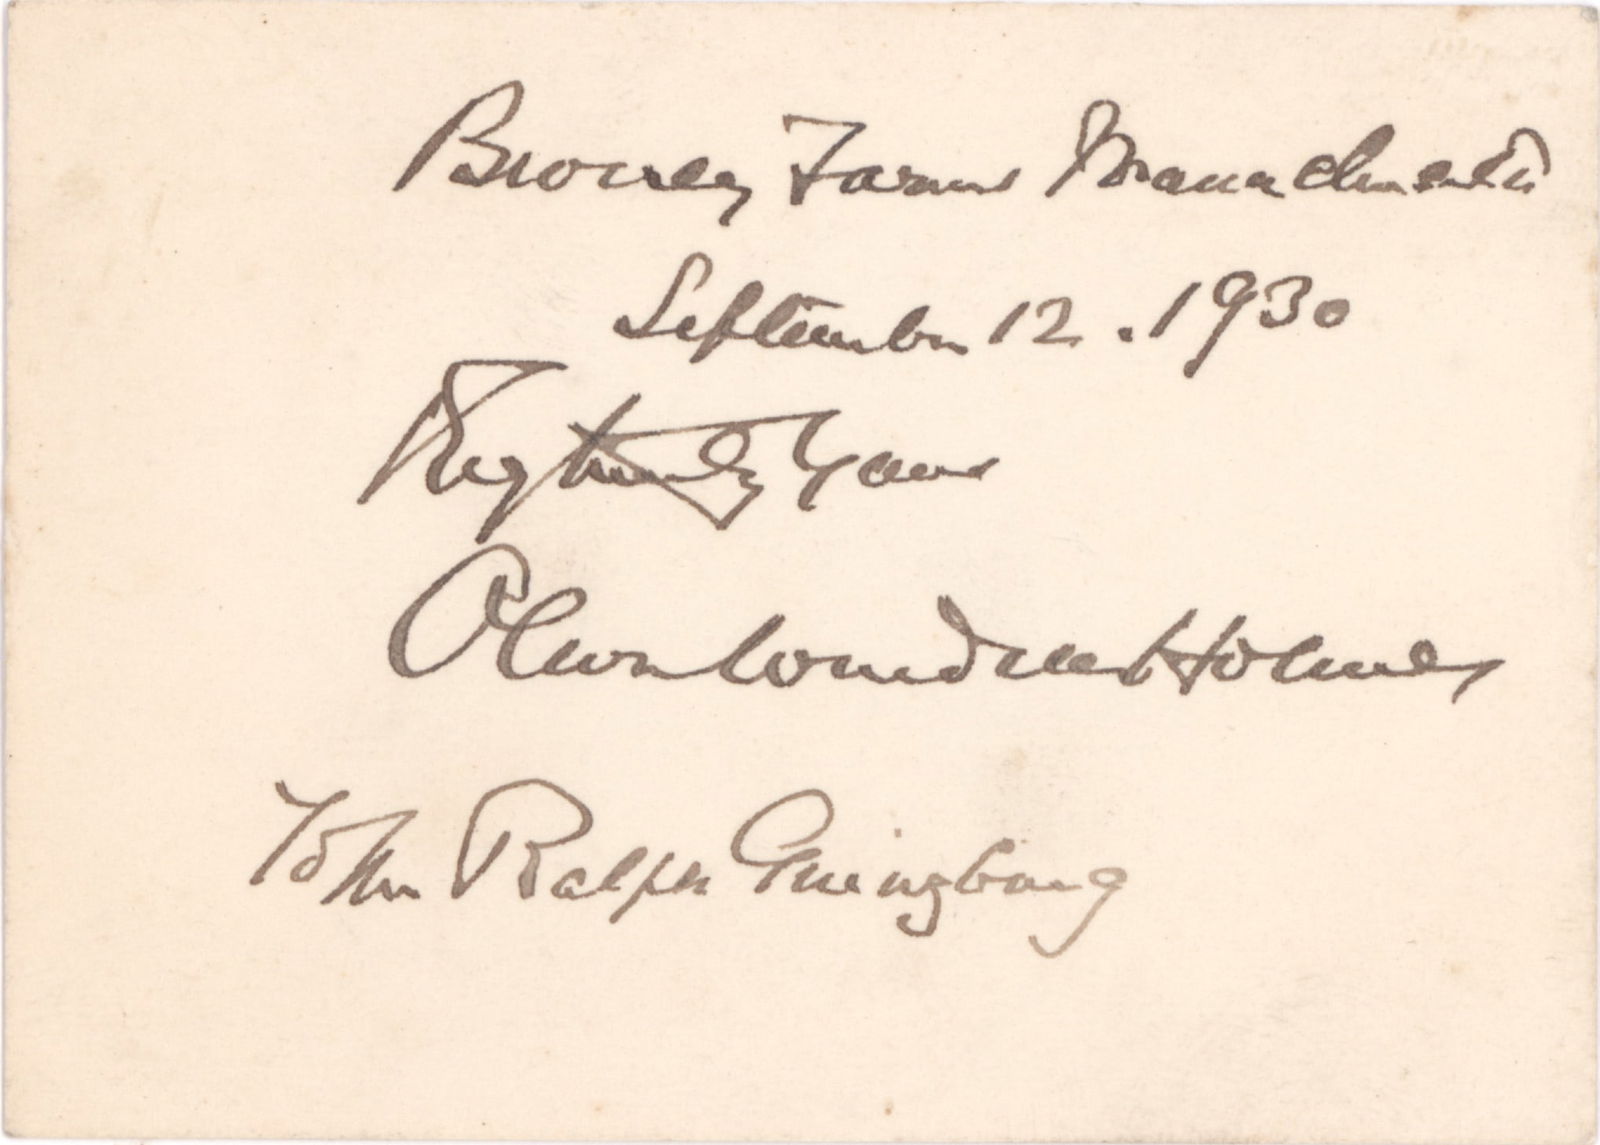 Beverly Farms Massachusetts
September 12. 1930
Very truly Yours
Oliver Wendell Holmes
To Mr Ralph Ginzburg